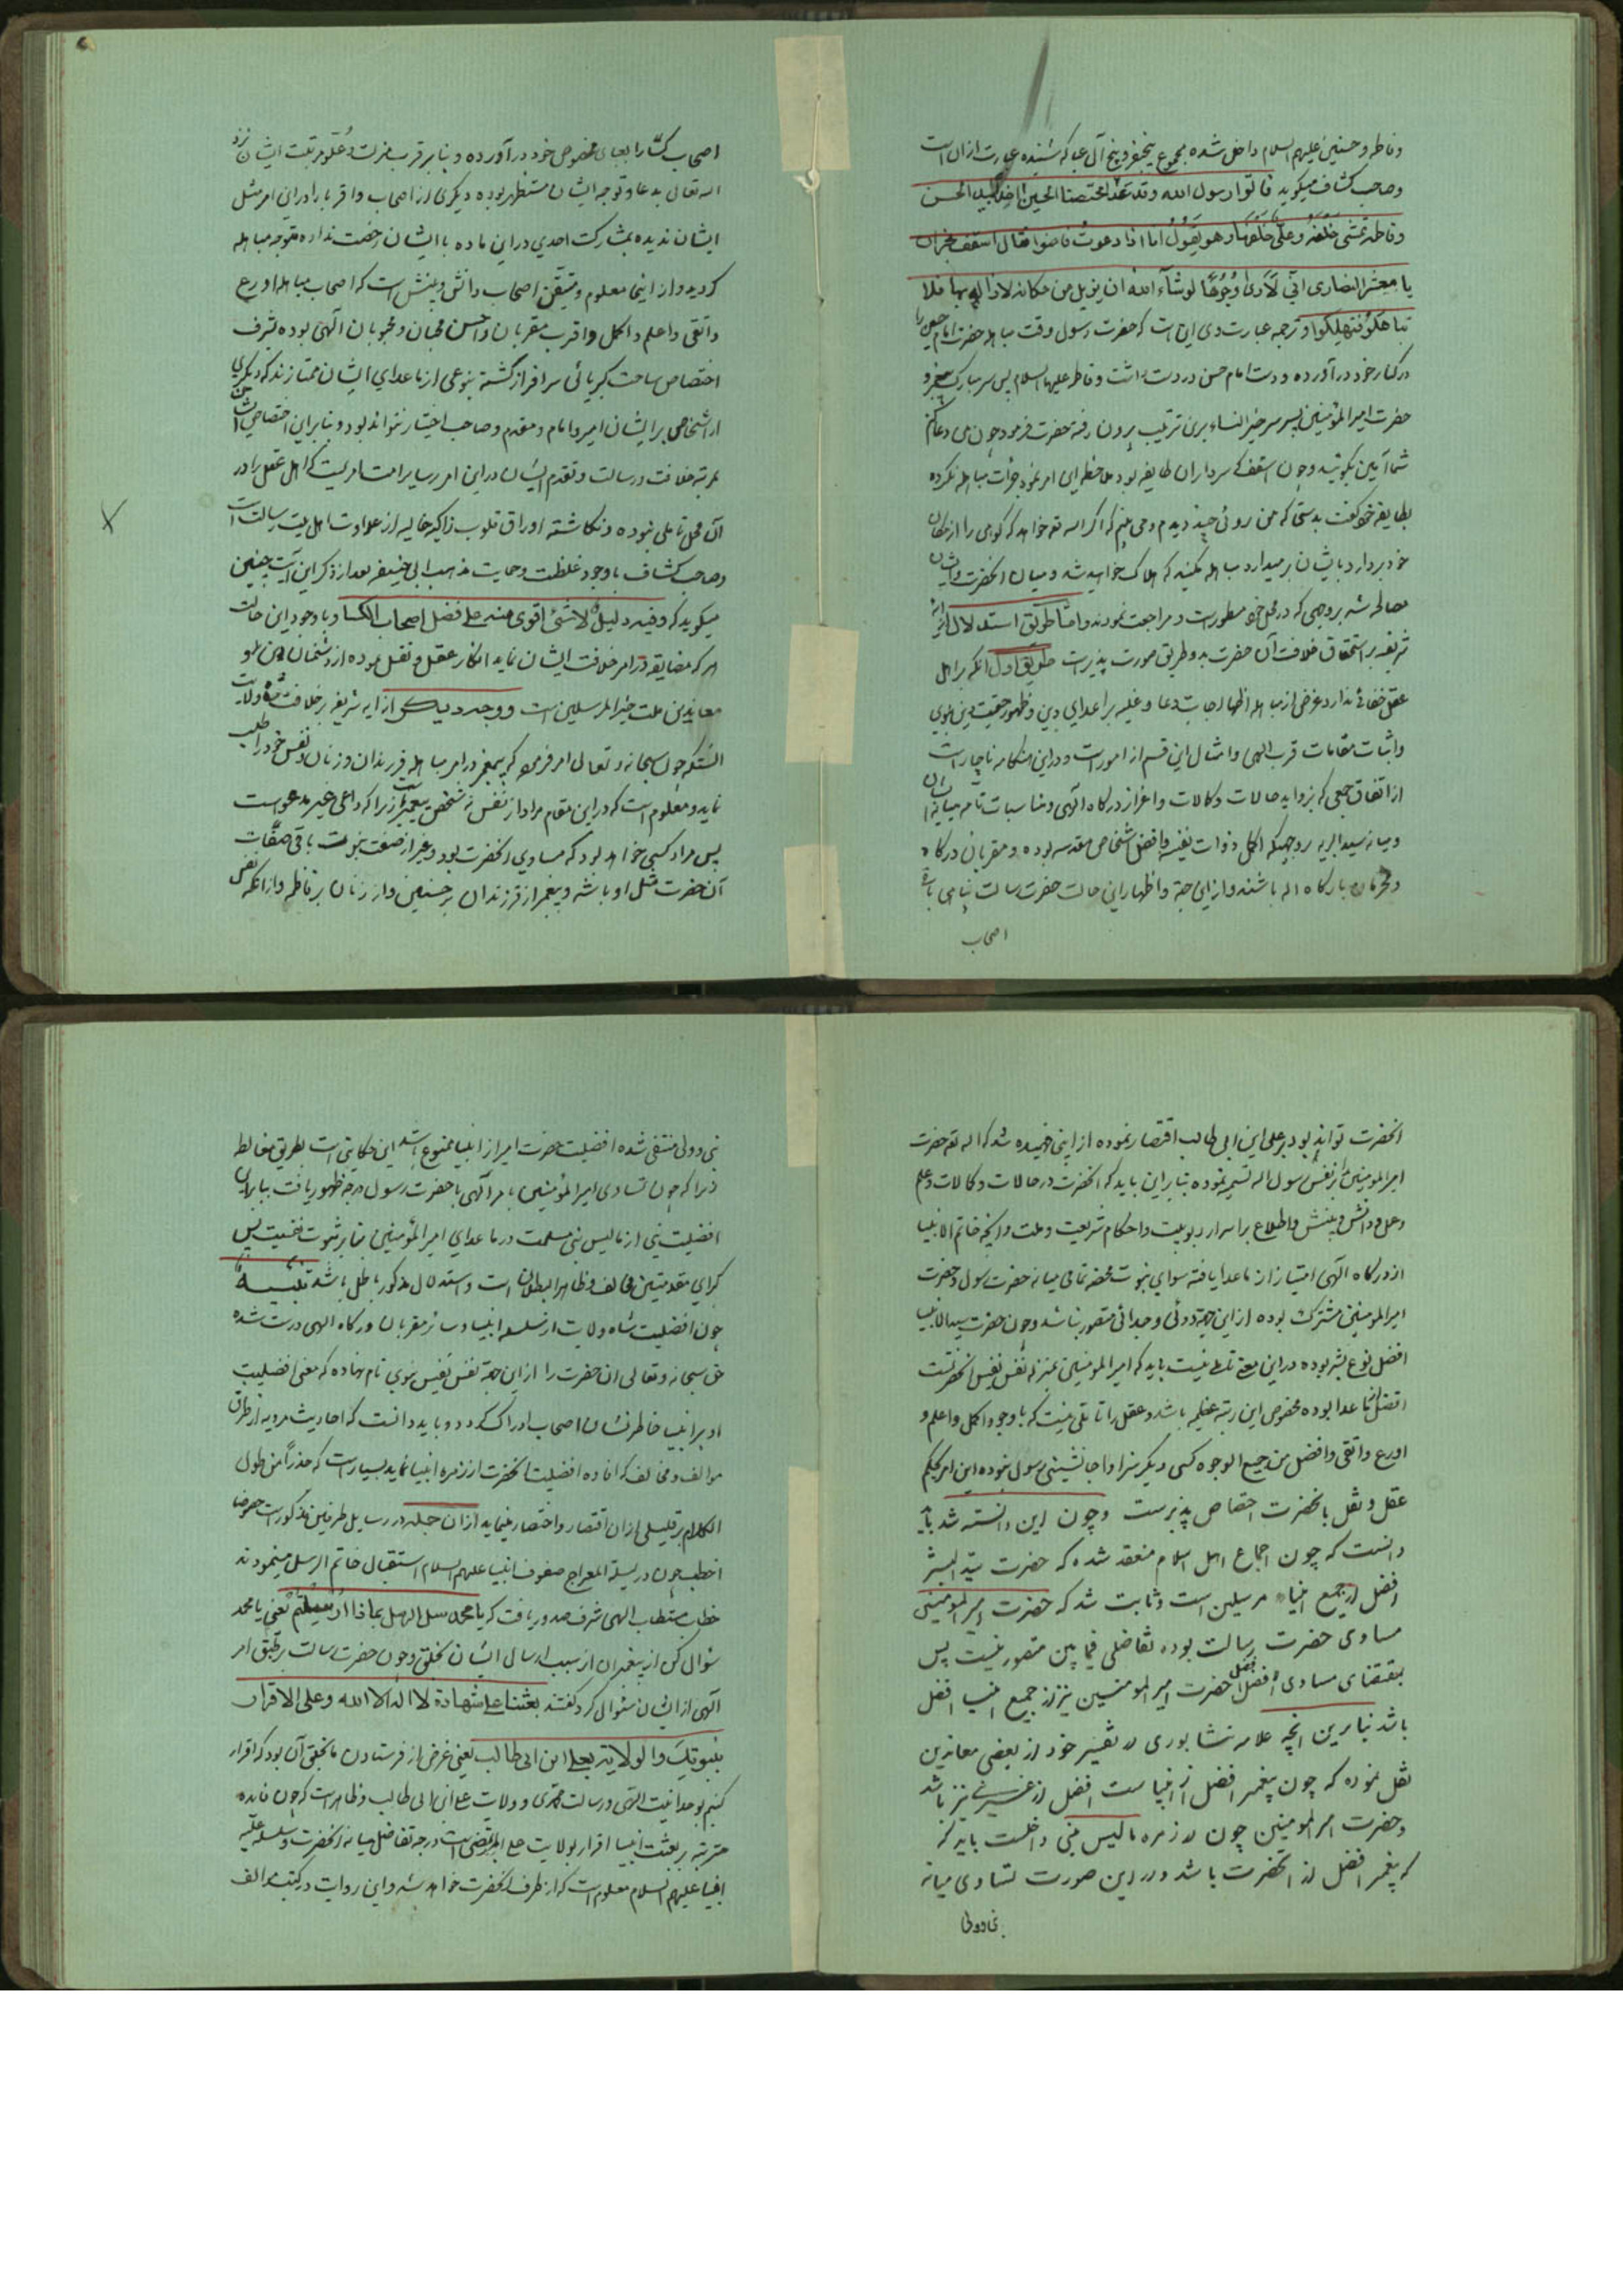 وفاطمه و حسنین علیهم السلام داخل شده مجموع پنجنفر و پنج آل عبا که شنیده عبارت ازان است
وصاحب کشاف میگوید فاتوا رسول الله وقد غدا محتضنا الحسین اخذا بید الحسن
وفاطمه تمشی خلفه وعلی خلفها وهو یقول اما اذا دعوت فامنوا فقال اسقف نجران
یا معشر النصاری انی لاری وجوها لو شاء الله ان یزیل من مکانه لازاله بها فلا
تباهلوا فتهلکوا و ترجمه عبارت وی این است که حضرت رسول وقت مباهله حضرت امام حسین را
در کنار خود در آورده و دست امام حسن در دست داشت و فاطمه علیها السلام پس سر مبارک پیغمبر و
حضرت امیر المؤمنین پس سر خیر النساء برین ترتیب برون رفته حضرت فرمود چون من دعا کنم
شما آمین بگوئید و چون اسقف که سردار آن طایفه بود ملاحظه این امر نمود جرأت مباهله نکرده
بطایفه خود گفت بدستی که من روئی چند دیدم و می بینم که اگر الله تعه خواهد که کوهی را از مکان
خود بردارد بایشان بر میدارد مباهله مکنید که هلاک خواهید شد و میان آنحضرت و ایشان
مصالحه شد بروجهی که در محل خود مسطور است و مراجعت نمودند و اما طریق استدلال
شریفه بر استحقاق خلافت آن حضرت بدو طریق صورت پذیر است طریق اول آنکه بر اهل
عقل خفائی ندارد غرض از مباهله اظهار اجابت دعا و غلبه بر اعدای دین و ظهور حقیت دین نبوی
واثبات مقامات قرب الهی و امثال این قسم از امور است و در این هنگامه ناچار است
از اتفاق جمعی که بزواید حالات و کمالات و اعزاز درگاه آلهی و مناسبات تامه میانه ایشان
و میانه سید البریه بروجهیکه اکمل ذوات نفیسه و افضل اشخاص مقدسه بوده و مقربان درگاه
و محرمان بارگاه اله باشند و از این جهة و اظهار این حالت حضرت رسالت پناهی
اصحاب
اصحاب کسا را بعبای مخصوص خود در آورده و بنابر قرب منزلت و علو مرتبت ایشان نزد
الله تعالی بدعا و توجه ایشان مستظهر بوده دیگری از اصحاب و اقربا را در این امر مثل
ایشان ندیده بمشارکت احدی در این ماده با ایشان رخصت نداده متوجه مباهله
گردید و از اینجا معلوم و متیقن اصحاب دانش و بینش است که اصحاب مباهله اورع
واتقی و اعلم و اکمل و اقرب مقربان و احسن محبان و محبوبان آلهی بوده بشرف
اختصاص ساحت کبریائی سرافراز گشته بنوعی از ماعدای ایشان ممتازند که دیگری
از اشخاص بر ایشان امیر و امام و مقدم و صاحب اختیار نتواند بود و بنابر این اختصاص
بمرتبه خلافت و رسالت و تقدم ایشان در این امر بر سایر امت امریست که اهل عقل را در
آن محل تاملی نبوده و نگاشته اوراق قلوب زاکیه خالیه از عداوت اهل بیت رسالت است
وصاحب کشاف باوجود غلظت و حمایت مذهب ابی حنیفه بعد از ذکر این آیت چنین
میگوید که وفیه دلیل لا شئ اقوی منه علی فضل اصحاب الکسا و باوجود این حالت
هر که مضایقه در امر خلافت ایشان نماید انکار عقل و نقل نموده از دشمنان دین
معاندین ملت خیر المرسلین است ووجه دیگر از آیه شریفه بر خلافت شاه ولایت
آنستکه چون سبحانه وتعالی امر فرمود که پیغمبر در امر مباهله فرزندان و زنان و نفس خود را طلب
نماید و معلوم است که در این مقام مراد از نفس نه شخص پیغمبر است زیرا که داعی غیر مدعوست
پس مراد کسی خواهد بود که مساوی آنحضرت بود و غیر از صفت نبوت باقی صفات
آن حضرت مثل او باشد و پیغمبر از فرزندان بر حسنین و از زنان بر فاطمه و از آنکه نفس
آنحضرت تواند بود بر علی ابن ابی طالب اقتصار نموده از اینجا فهمیده شد که اله تعه حضرت
امیر المومنین را بنفس رسول اله تسمیه نموده بنابر این باید که آنحضرت در حالات و کمالات و علم
و عمل و دانش و بینش و اطلاع بر اسرار ربوبیت و احکام شریعت و ملت و آنچه خاتم الانبیا
از درگاه آلهی امتیاز از ماعدا یافته سوای نبوت محضه تمامی میانه حضرت رسول و حضرت
امیر المومنین مشترک بوده از این جهة دوئی و جدائی متصور نباشد و چون حضرت سید الانبیا
افضل نوع بشر بوده در این معنی تاملی نیست باید که امیر المومنین بمنزله نفس نفیس آنحضرتست
افضل از ماعدا بوده مخصوص این رتبه عظیمه باشد و عقل را تاملی نیست که باوجود اکمل و اعلم و
اورع و اتقی و افضل من جمیع الوجوه کسی دیگر سزاوار جانشینی رسول نبوده این امر بحکم
عقل و نقل بآنحضرت اختصاص پذیرست وچون این دانسته شد باید
دانست که چون اجماع اهل اسلام منعقد شده که حضرت سید البشر
افضل از جمیع انبیاء مرسلین است و ثابت شد که حضرت امیر المومنین
مساوی حضرت رسالت بوده تفاضلی فیما بین متصور نیست پس
بمقتضای مساوی افضل افضل حضرت امیر المومنین نیز از جمیع انبیا افضل
باشد بنابرین آنچه علامه نیشابوری در تفسیر خود از بعضی معاندین
نقل نموده که چون پیغمبر افضل از انبیاست افضل از غیر نبی نیز باشد
و حضرت امیر المومنین چون در زمره مالیس بنبی داخلست باید که
که پیغمبر افضل از آنحضرت باشد و در این صورت تساوی میانه
نبی و ولی منتفی شده افضلیت حضرت امیر از انبیا ممنوع باشد این حکایتی است بطریق مغالطه
زیرا که چون تساوی امیر المؤمنین بامر آلهی با حضرت رسول درجه ظهور یافت بنابراین
افضلیت نبی از مالیس نبی مسلمست در ماعدای امیر المؤمنین بنابر ثبوت نفسیت پس
کبرای مقدمتین مخالف و ظاهر البطلان است و استدلال مذکور باطل باشد تنبیه
چون افضلیت شاه ولایت از سلسله انبیا و سائر مقربان درگاه الهی درست شده
حق سبحانه وتعالی ان حضرت را از این جهة نفس نفیس نبوی نام نهاده که معنی افضلیت
او بر انبیا خاطرنشان اصحاب ادراک گردد و باید دانست که احادیث مرویه از طرق
موالف و مخالف که افاده افضلیت آنحضرت از زمره انبیا نماید بسیار است که حذراً من طول
الکلام بر قلیلی از ان اقتصار و اختصار مینماید ازان جمله در رسایل طرفین مذکور است
اخطب چون در لیلة المعراج صفوف انبیا علیهم السلام استقبال خاتم الرسل مینمودند
خطاب مستطاب الهی شرف صدور یافت که یا محمد سل الرسل بماذا ارسلتم یعنی یا محمد
سؤال کن از پیغمبران از سبب ارسال ایشان بخلق و چون حضرت رسالت بر طبق امر
آلهی از ایشان سؤال کرد گفتند بعثنا علی شهادة لا اله الا الله وعلی الاقرار
بنبوتک والولایة لعلی ابن ابی طالب یعنی غرض از فرستادن ما بخلق آن بود که اقرار
کنیم بوحدانیت الهی و رسالت محمدی و ولایت علی ابن ابی طالب و ظاهر است که چون فایده
مترتبه بر بعثت انبیا اقرار بولایت علی المرتضی است درجه تفاضل میانه آنحضرت و سلسله علیه
انبیا علیهم السلام معلوم است که از طرف آنحضرت خواهد شد و این روایت در کتب موالف